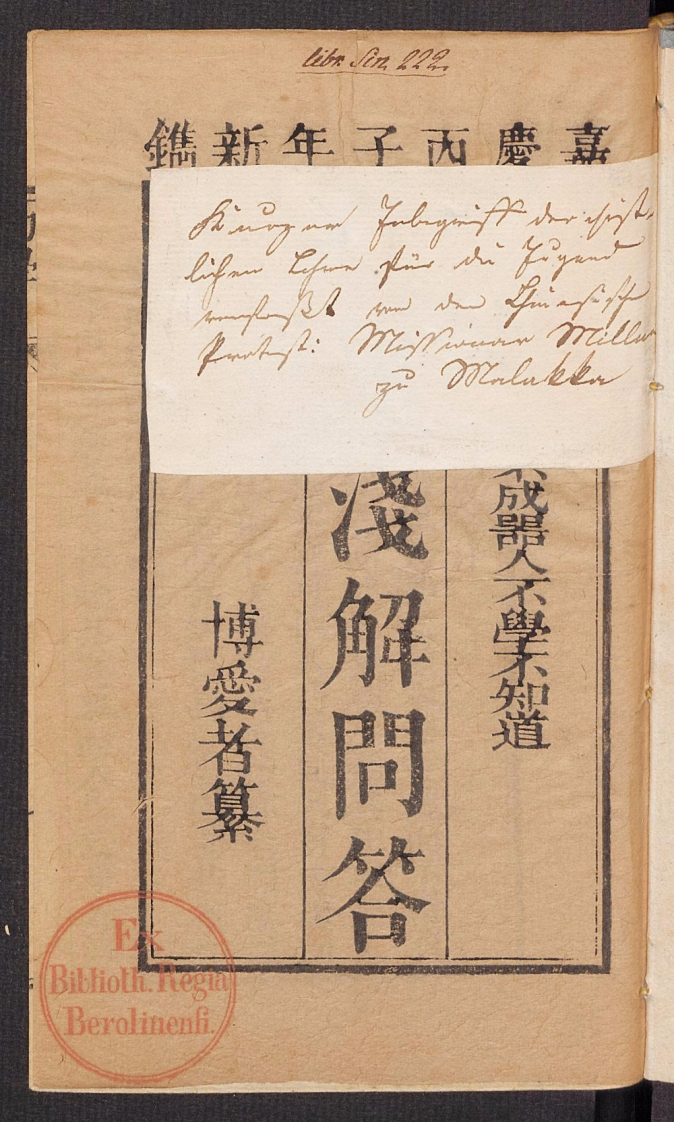 libr. Sin. 222.
嘉慶丙子年新鐫
Kurzer Inbegriff der christ-
lichen Lehre für die Jugend
verfaßt von dem Chinesisch
Protest: Missionar Milln
zu Malakka
成器人不學不知道
淺解問答
博愛者纂
Ex
Biblioth. Regia
Berolinensi.